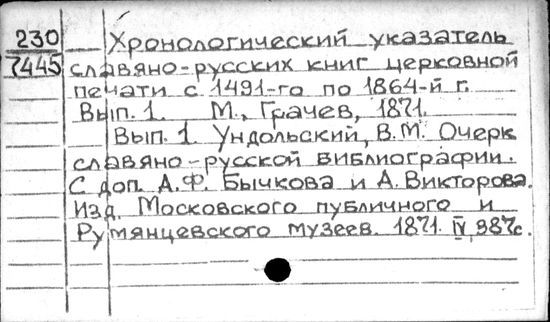 230 Хронологический указатель
7445 славяно-русских книг церковной
печати с 1491-го по 1864-й г.
Вып. 1. М., Грачев, 1871
Вып. 1. Ундольский, В.М. Очерк
славяно-русской библиографии.
С доп. А.Ф. Бычкова и А. Викторова.
Изд. Московского публичного и
Румянцевского музеев. 1871. IV, 387с.